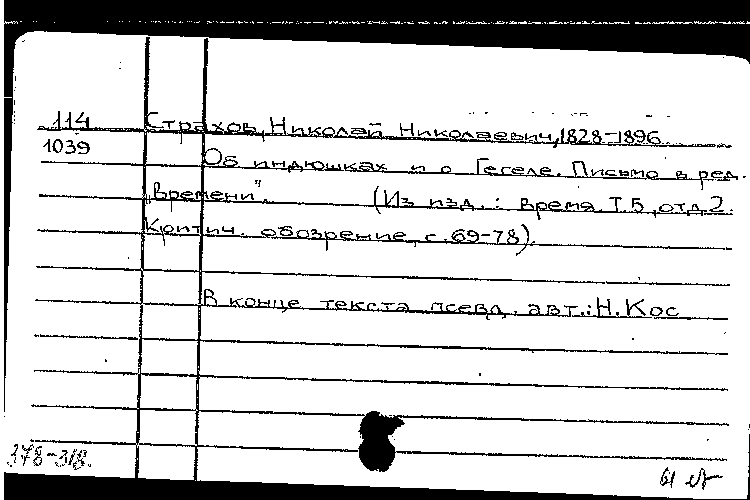 114 Страхов, Николай Николаевич, 1828-1896.
1039 Об индюшках и о Гегеле. Письмо в ред.
„Времени". (Из изд.: Время. Т.5, отд.2.
Критич. обозрение, с.69-78).
В конце текста псевд. авт.: Н.Кос
378-318.
61